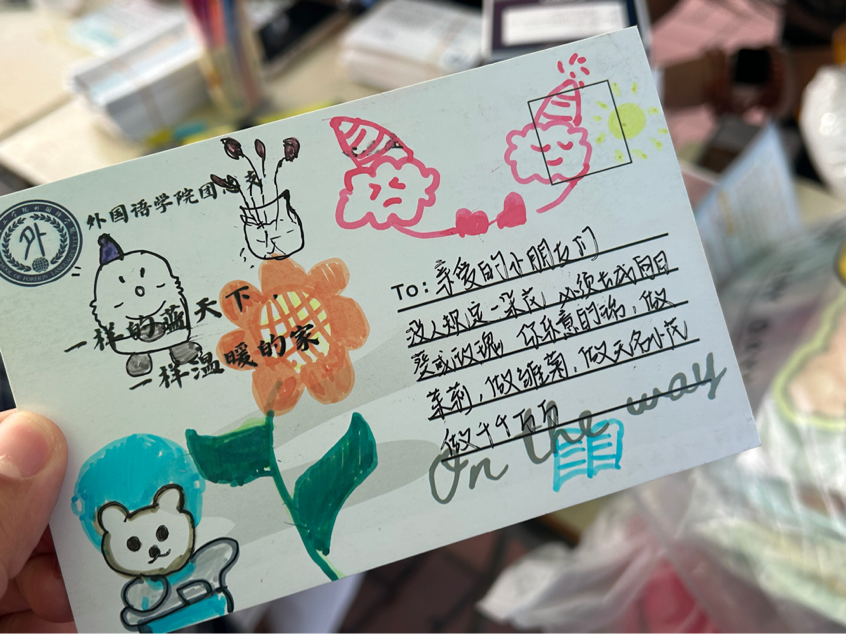 外国语学院团
外
一样的蓝天下
一样温暖的家
To: 亲爱的小朋友们
没人规定一朵花 必须长成向日
葵或玫瑰 你乐意的话，做
茉莉，做雏菊，做无名小花
做千千万万
On the way